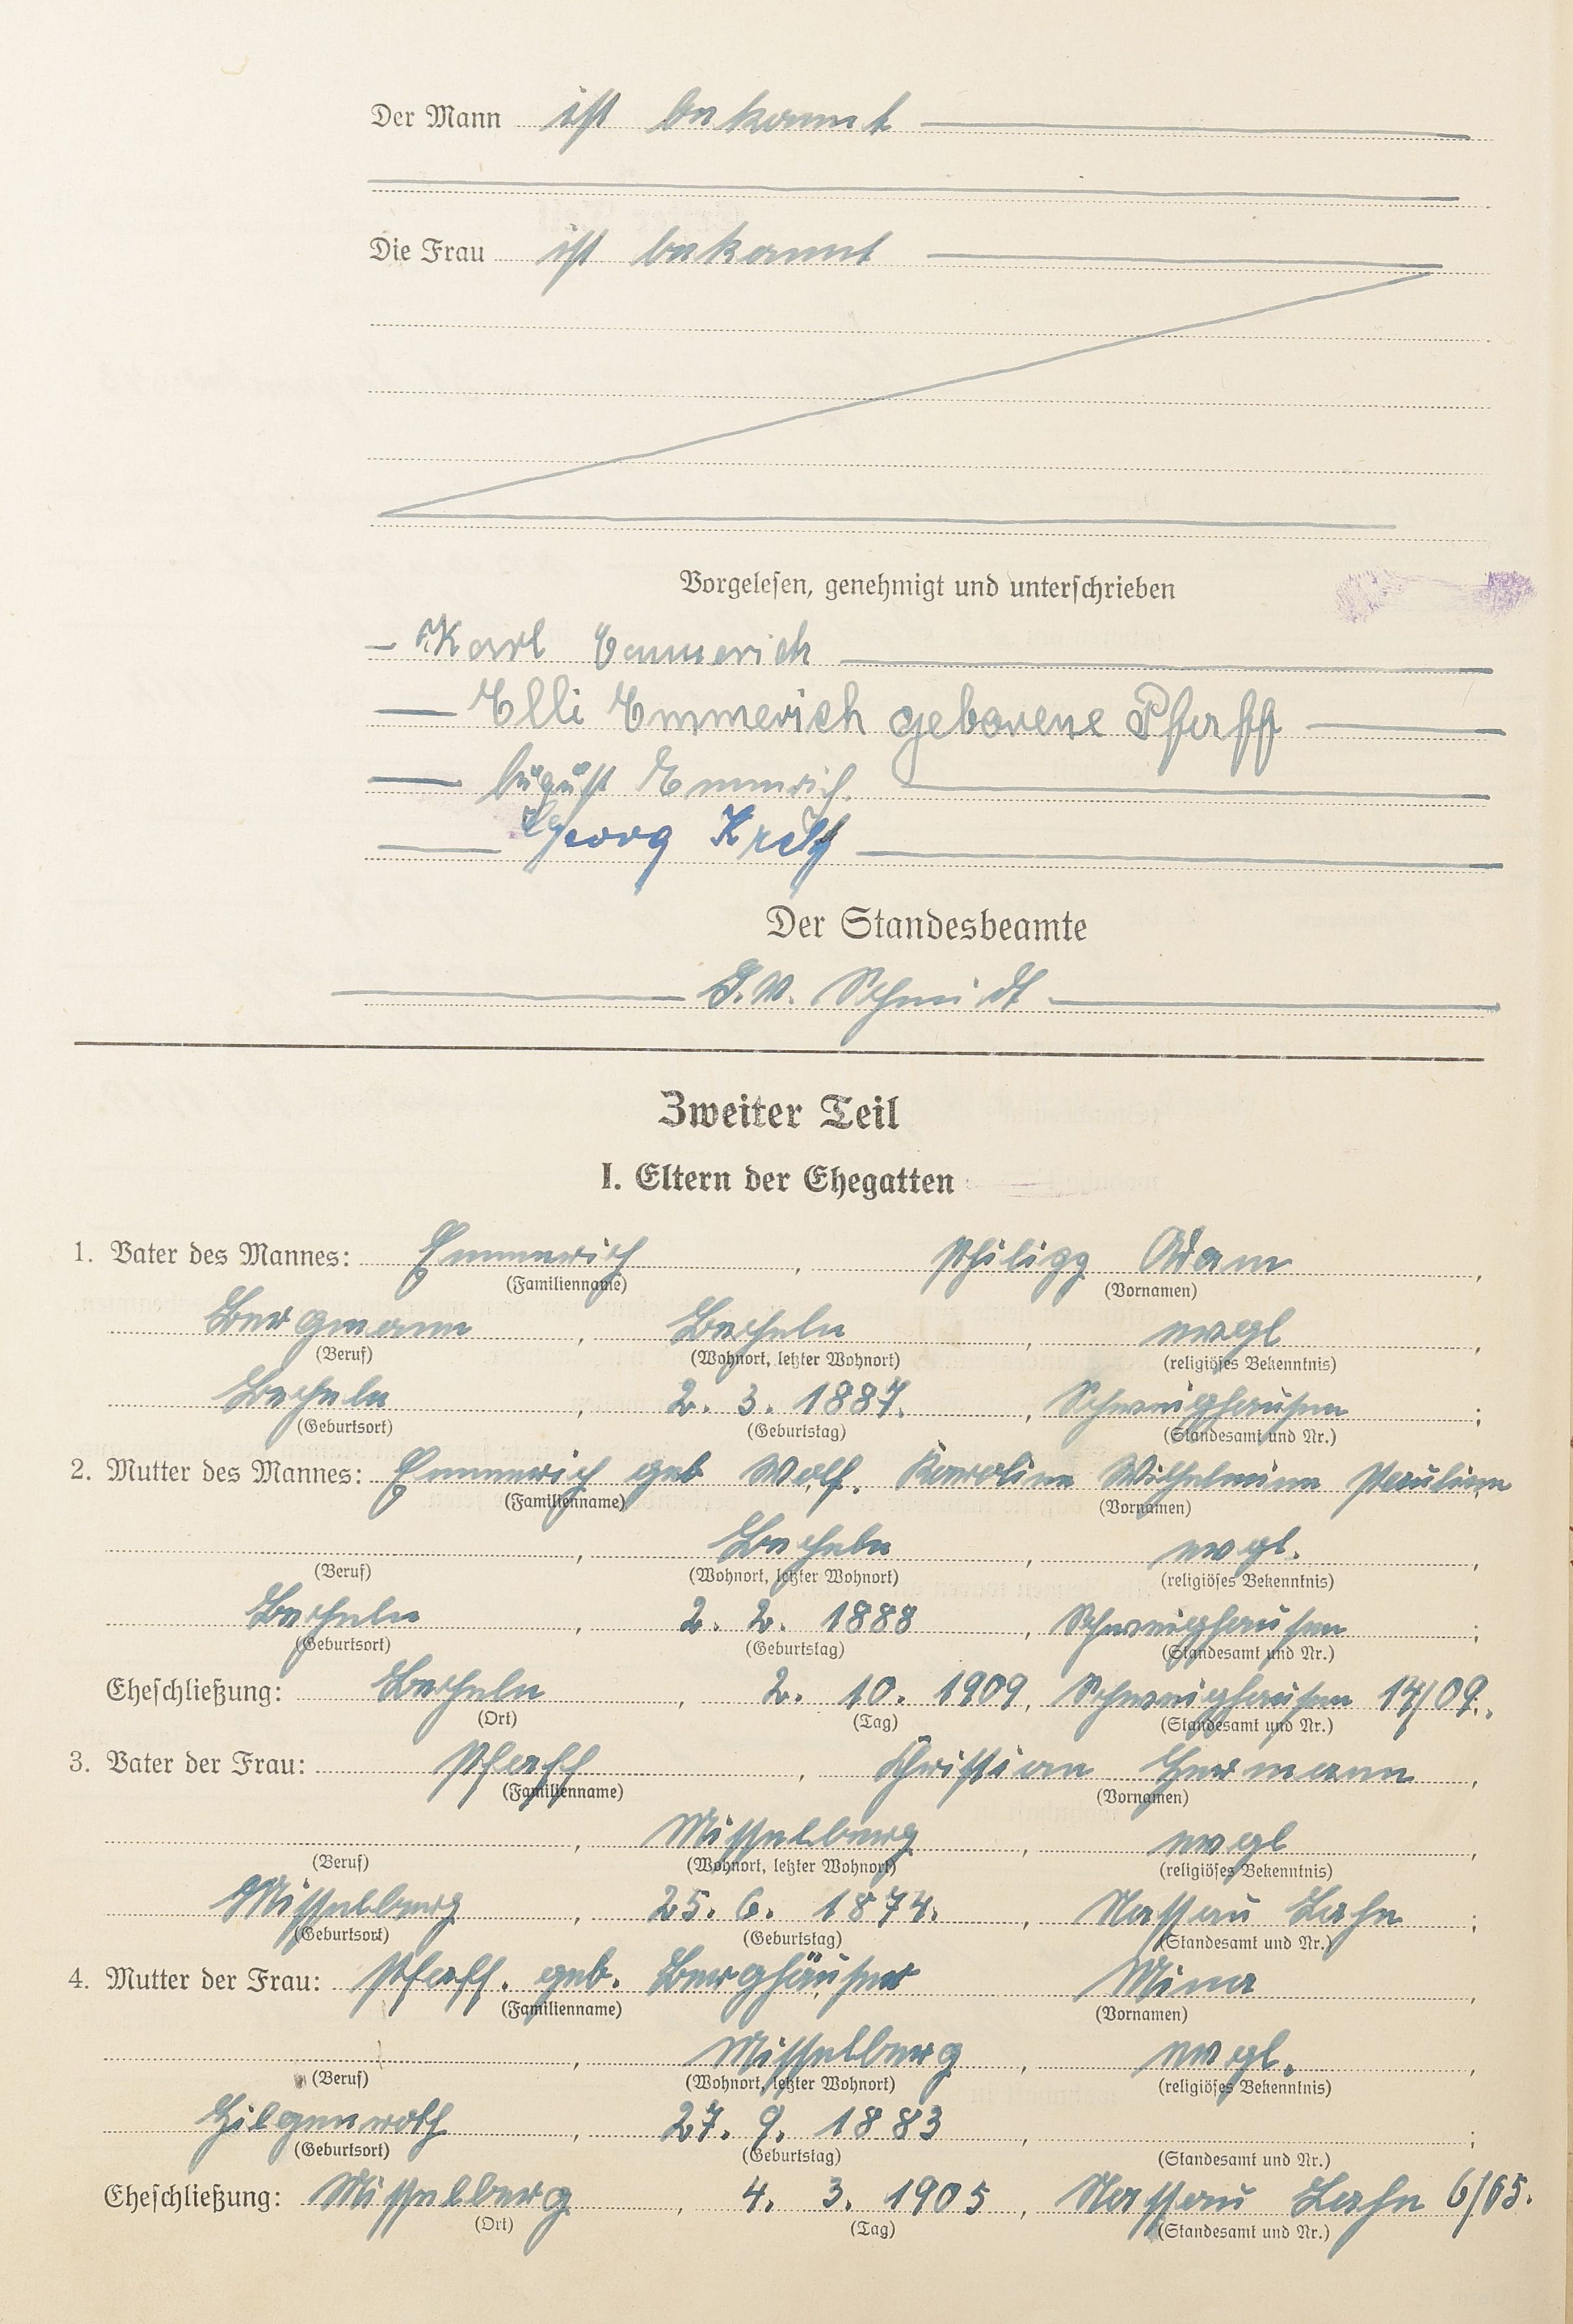 Der Mann ist bekannt
Die Frau ist bekannt
Vorgelesen, genehmigt und unterschrieben
Karl Emmerich
Elli Emmerich geborene Pfaff
August Emmerich.
Georg
Der Standesbeamte
I.V. Schmidt
Zweiter Teil
I. Eltern der Ehegatten
1. Vater des Mannes: Emmerich, Philipp Adam,
(Familienname) (Vornamen)
Bergmann, Becheln, evgl,
(Beruf) (Wohnort, letzter Wohnort) (religiöses Bekenntnis)
Becheln, 2. 3. 1887., Schweighausen;
(Geburtsort) (Geburtstag) (Standesamt und Nr.)
2. Mutter des Mannes: Emmerich geb Wolf, Karoline Wilhelmine Pauline
(Familienname) (Vornamen)
, Becheln, evgl.,
(Beruf) (Wohnort, letzter Wohnort) (religiöses Bekenntnis)
Becheln, 2. 2. 1888, Schweighausen;
(Geburtsort) (Geburtstag) (Standesamt und Nr.)
Eheschließung: Becheln, 2. 10. 1909, Schweighausen 14/09.,
(Ort) (Tag) (Standesamt und Nr.)
3. Vater der Frau: Pfaff, Christian Hermann,
(Familienname) (Vornamen)
, Misselberg, evgl,
(Beruf) (Wohnort, letzter Wohnort) (religiöses Bekenntnis)
Misselberg, 25. 6. 1874., Nassau Lahn;
(Geburtsort) (Geburtstag) (Standesamt und Nr.)
4. Mutter der Frau: Pfaff. geb. Berghäuser Mina,
(Familienname) (Vornamen)
, Misselberg, evgl.,
(Beruf) (Wohnort, letzter Wohnort) (religiöses Bekenntnis)
Hilgenroth, 27. 9. 1883, ;
(Geburtsort) (Geburtstag) (Standesamt und Nr.)
Eheschließung: Misselberg, 4. 3. 1905, Nassau Lahn 6/05.
(Ort) (Tag) (Standesamt und Nr.)